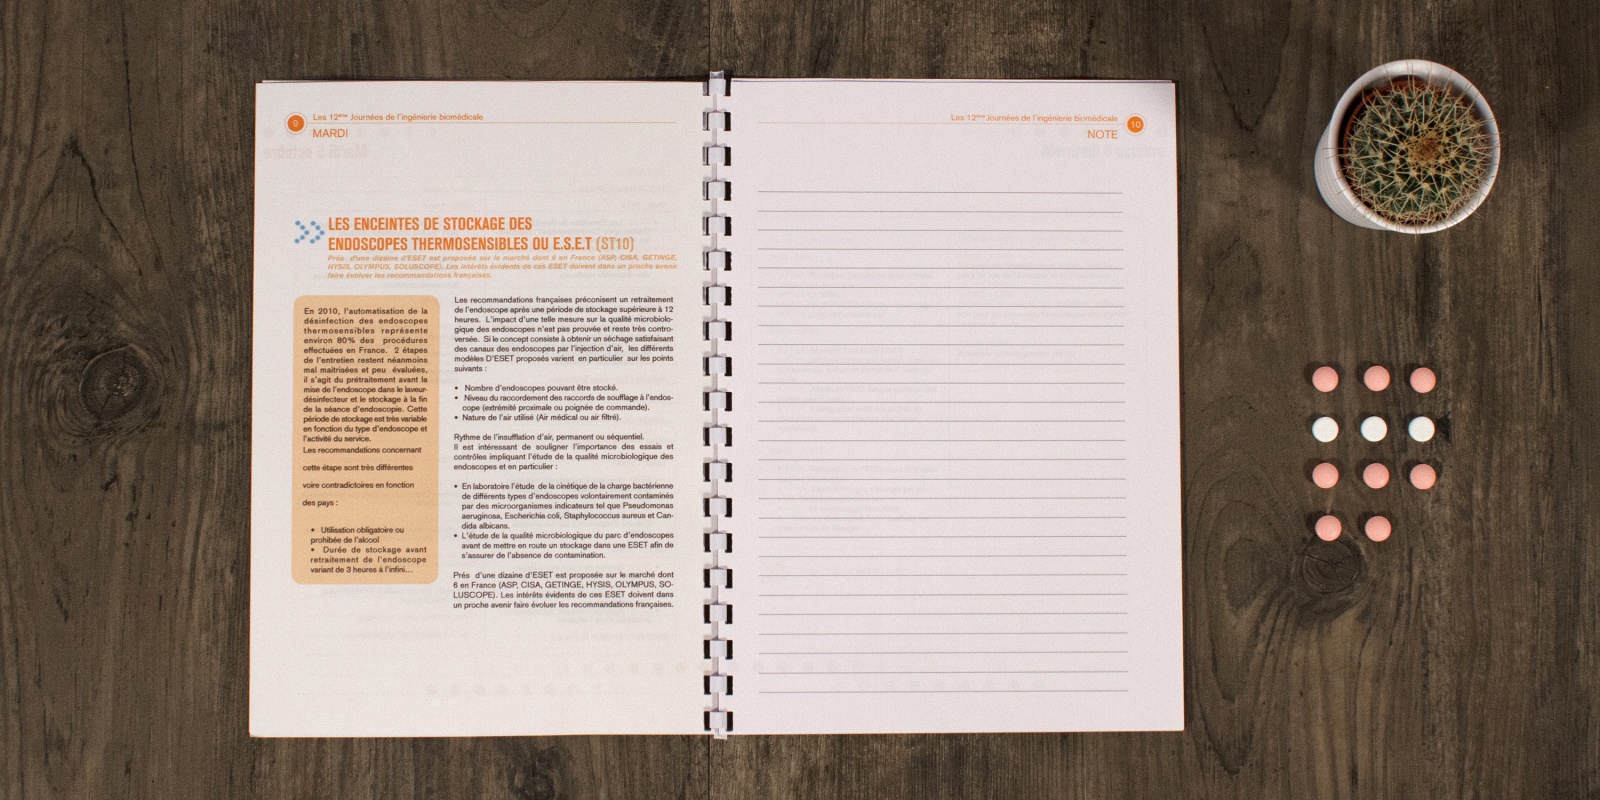 9
Les 12ème Journées de l'ingénierie biomédicale
MARDI
LES ENCEINTES DE STOCKAGE DES
ENDOSCOPES THERMOSENSIBLES OU E.S.E.T (ST10)
Prés d'une dizaine d'ESET est proposée sur le marché dont 6 en France (ASP, CISA, GETINGE,
HYSIS, OLYMPUS, SOLUSCOPE). Les intérêts évidents de ces ESET doivent dans un proche avenir
faire évoluer les recommandations françaises.
En 2010, l'automatisation de la
désinfection des endoscopes
thermosensibles représente
environ 80% des procédures
effectuées en France. 2 étapes
de l'entretien restent néanmoins
mal maitrisées et peu évaluées,
il s'agit du prétraitement avant la
mise de l'endoscope dans le laveur-
désinfecteur et le stockage à la fin
de la séance d'endoscopie. Cette
période de stockage est très variable
en fonction du type d'endoscope et
l'activité du service.
Les recommandations concernant
cette étape sont très différentes
voire contradictoires en fonction
des pays :
• Utilisation obligatoire ou
prohibée de l'alcool
• Durée de stockage avant
retraitement de l'endoscope
variant de 3 heures à l'infini...
Les recommandations françaises préconisent un retraitement
de l'endoscope après une période de stockage supérieure à 12
heures. L'impact d'une telle mesure sur la qualité microbiolo-
gique des endoscopes n'est pas prouvée et reste très contro-
versée. Si le concept consiste à obtenir un séchage satisfaisant
des canaux des endoscopes par l'injection d'air, les différents
modèles D'ESET proposés varient en particulier sur les points
suivants :
• Nombre d'endoscopes pouvant être stocké.
• Niveau du raccordement des raccords de soufflage à l'endos-
cope (extrémité proximale ou poignée de commande).
• Nature de l'air utilisé (Air médical ou air filtré).
Rythme de l'insufflation d'air, permanent ou séquentiel.
Il est intéressant de souligner l'importance des essais et
contrôles impliquant l'étude de la qualité microbiologique des
endoscopes et en particulier :
• En laboratoire l'étude de la cinétique de la charge bactérienne
de différents types d'endoscopes volontairement contaminés
par des microorganismes indicateurs tel que Pseudomonas
aeruginosa, Escherichia coli, Staphylococcus aureus et Can-
dida albicans.
• L'étude de la qualité microbiologique du parc d'endoscopes
avant de mettre en route un stockage dans une ESET afin de
s'assurer de l'absence de contamination.
Prés d'une dizaine d'ESET est proposée sur le marché dont
6 en France (ASP, CISA, GETINGE, HYSIS, OLYMPUS, SO-
LUSCOPE). Les intérêts évidents de ces ESET doivent dans
un proche avenir faire évoluer les recommandations françaises.
Les 12ème Journées de l'ingénierie biomédicale
10
NOTE